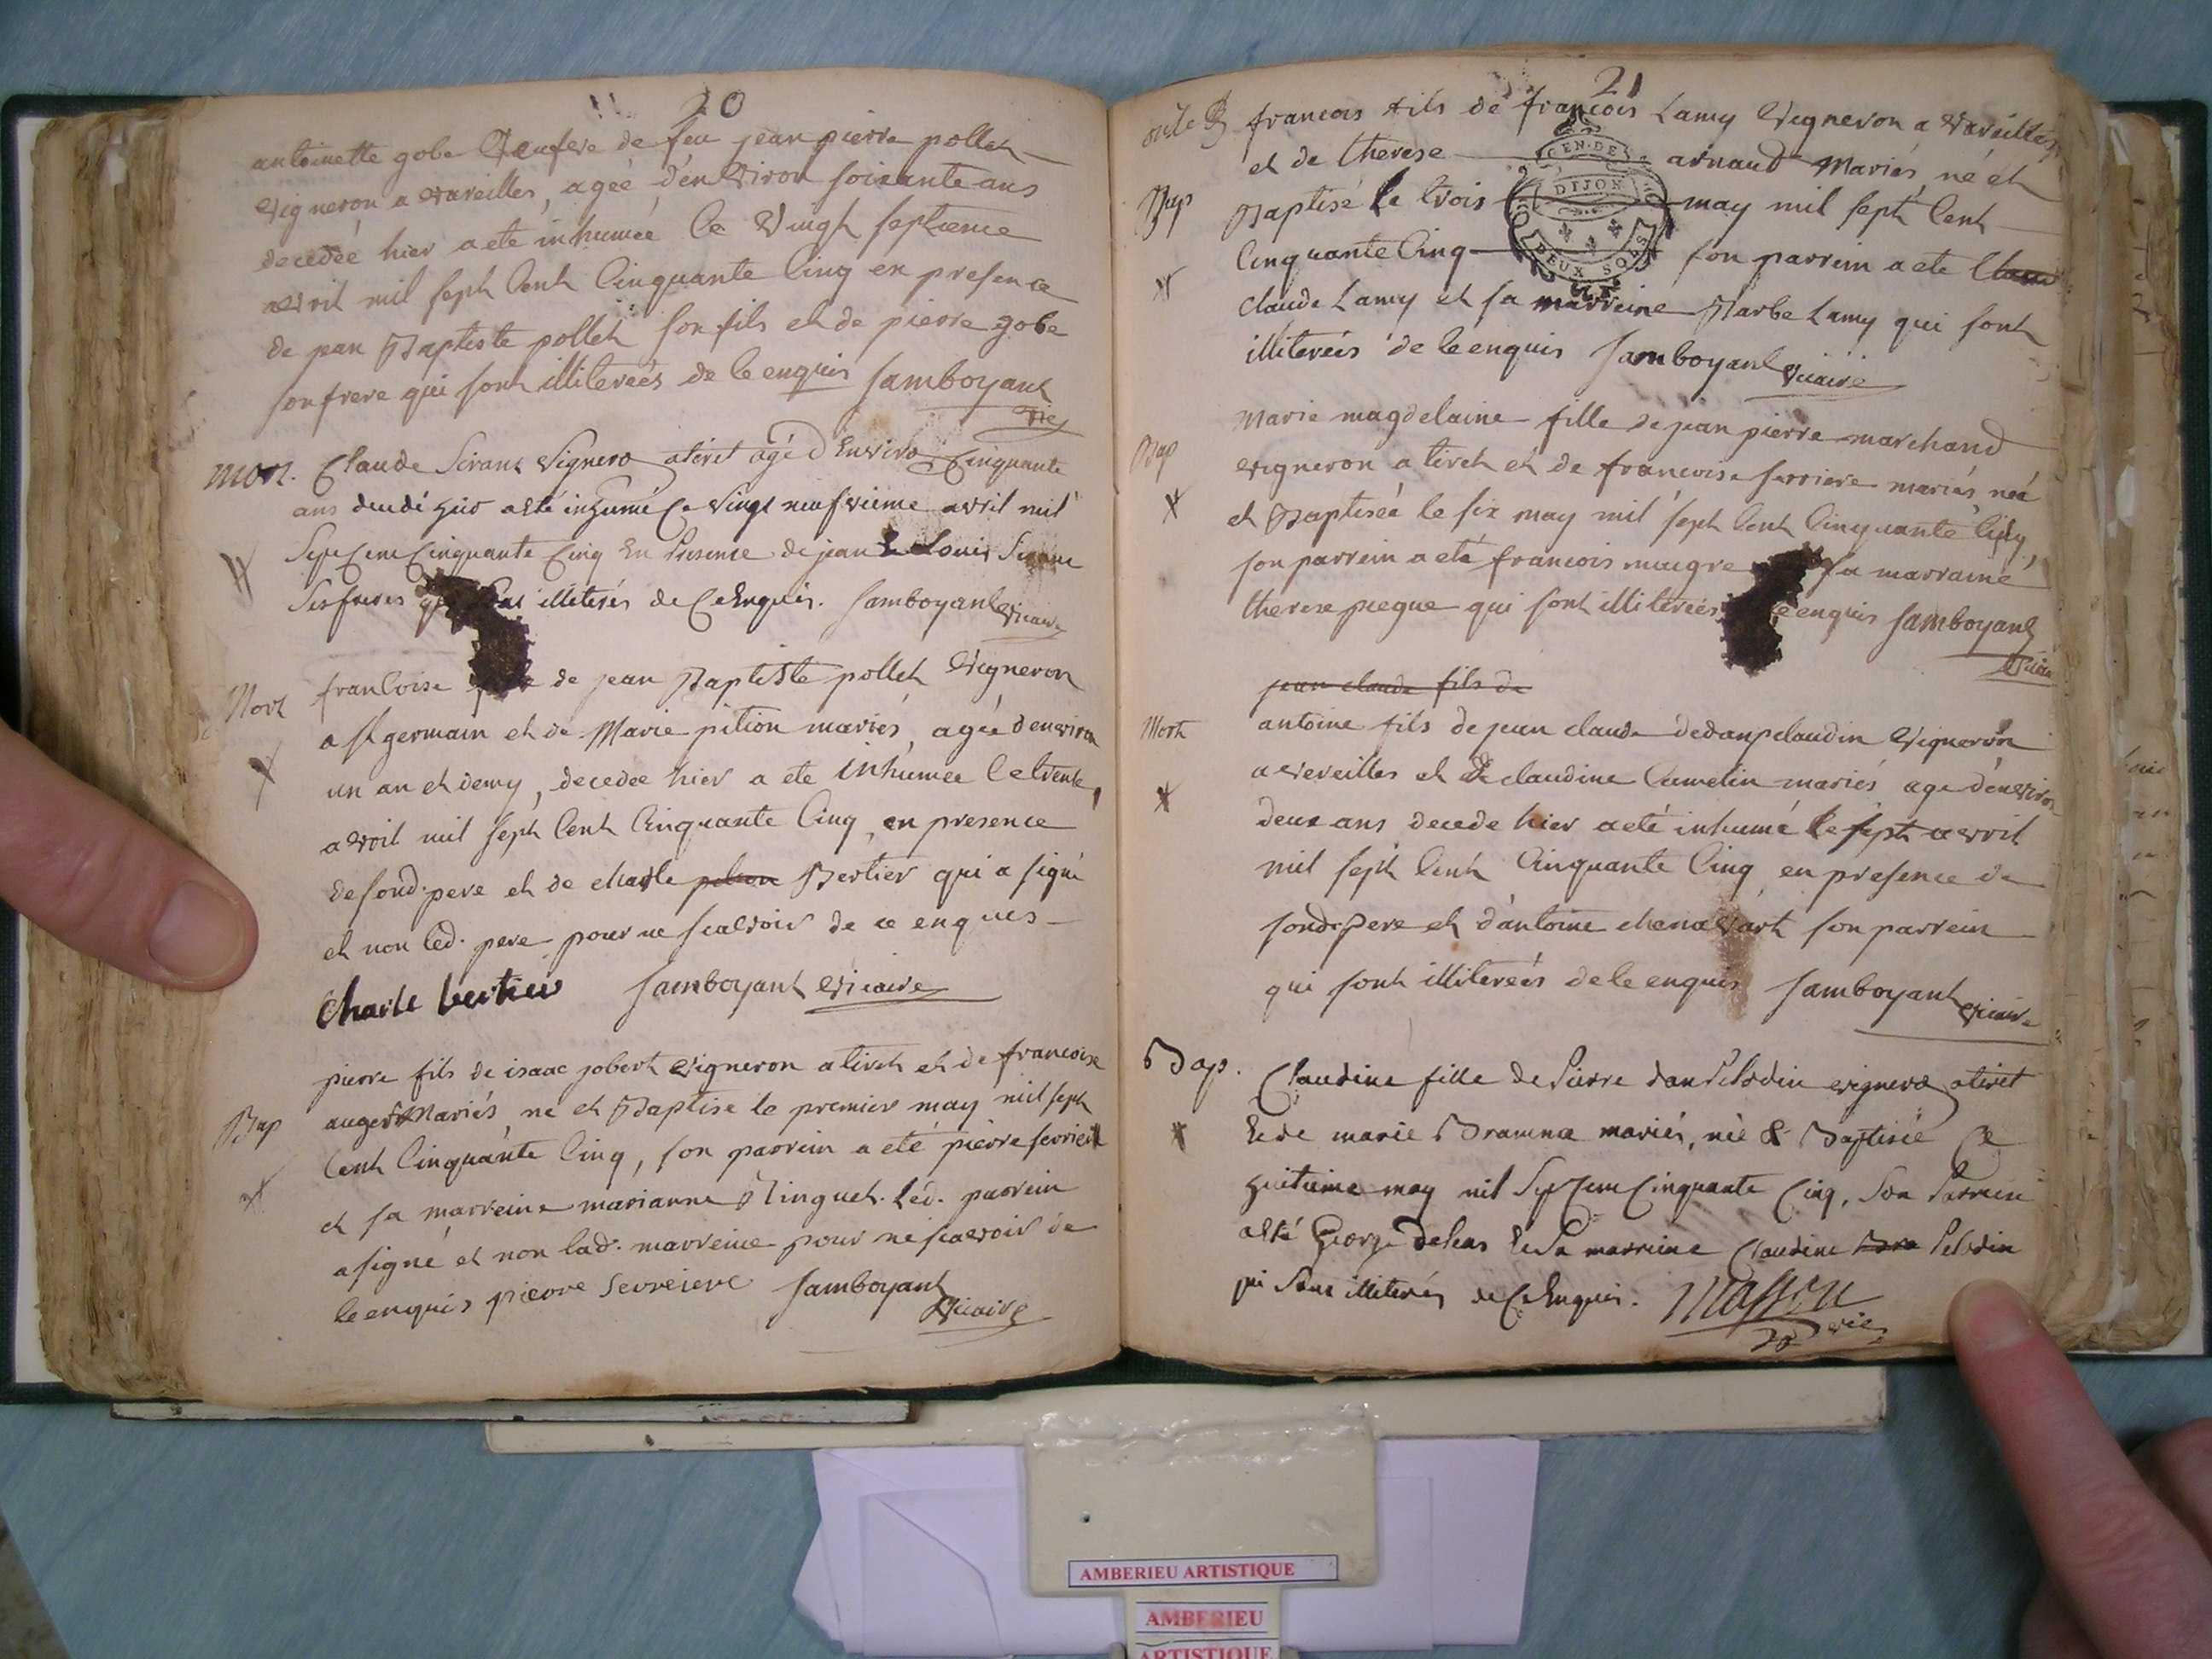 20
antoinette gobe veufve de feu jean pierre pollet
vigneron a vareilles, agée d'environ soixante ans
decedée hier a eté inhumée ce vingt septieme
avril mil sept cent cinquante cinq en presence
de jean Baptiste pollet son fils et de pierre gobe
son frere qui sont illiterées de ce enquis Jamboyant
vic
mort. Claude Sirant vignero a tiret agé d'Enviro cinquante
ans decedé hier a esté inhumé ce vingt neufvieme avril mil
Sept Cent Cinquante Cinq En Presence de jean & Louis Sirant
Ses freres illiterés de Ce Enquis. Jamboyant vicaire
Mort francoise de jean Baptiste pollet vigneron
a st germain et de Marie pition mariés, agée d'environ
un an et demy, decedee hier a ete inhumee le trente,
avril mil sept cent cinquante cinq, en presence
de sond. pere et de charle pition Bertier qui a signé
et non led. pere pour ne scavoir de ce enquis
Charle bertier Jamboyant vicaire
pierre fils de isaac jobert vigneron a tiret et de francoise
Bap auger Mariés, né et Baptise le premier may mil sept
cent cinquante cinq, son parrein a eté pierre
et sa marreine marianne Minguet. Led. parrein
a signé et non lad. marreine pour ne scavoir de
ce enquis pierre Jamboyant
vicaire
21
francois fils de francois Lamy vigneron a vareilles
et de therese arnaud Mariés, né et
Bap Baptisé le trois may mil sept cent
cinquante cinq son parrein a ete Clau
claude Lamy et sa marreine Barbe Lamy qui sont
illiterées de ce enquis Jamboyant vicaire
GEN. DE
DIJON
DEUX SOLS
marie magdelaine fille de jean pierre marchand
Bap vigneron a tiret et de francoise ferriere mariés, neé
et Baptiseé le six may mil sept cent cinquante cinq,
son parrein a eté francois maigre sa marraine
therese pregue qui sont illiterées ce enquis Jamboyant
vicaire
jean claude fils de
Mort antoine fils de jean claude dedanpelaudin vigneron
a vereilles et de claudine Camelin mariés age d'environ
deux ans decede hier a eté inhumé le sept avril
mil sept cent cinquante cinq en presence de
sond. pere et d'antoine chenavart son parrein
qui sont illiterées de ce enquis Jamboyant vicaire
Bap. Claudine fille de Pierre vignero a tiret
et de marie Bramna mariés, née & Baptisée Ce
huitieme may mil Sept Cent Cinquante Cinq, Son Parrein
a esté George dehas et Sa marreine Claudine Bra
qui Sont illiterés de Ce Enquis. Masson
vic
AMBERIEU ARTISTIQUE
AMBERIEU
ARTISTIQUE